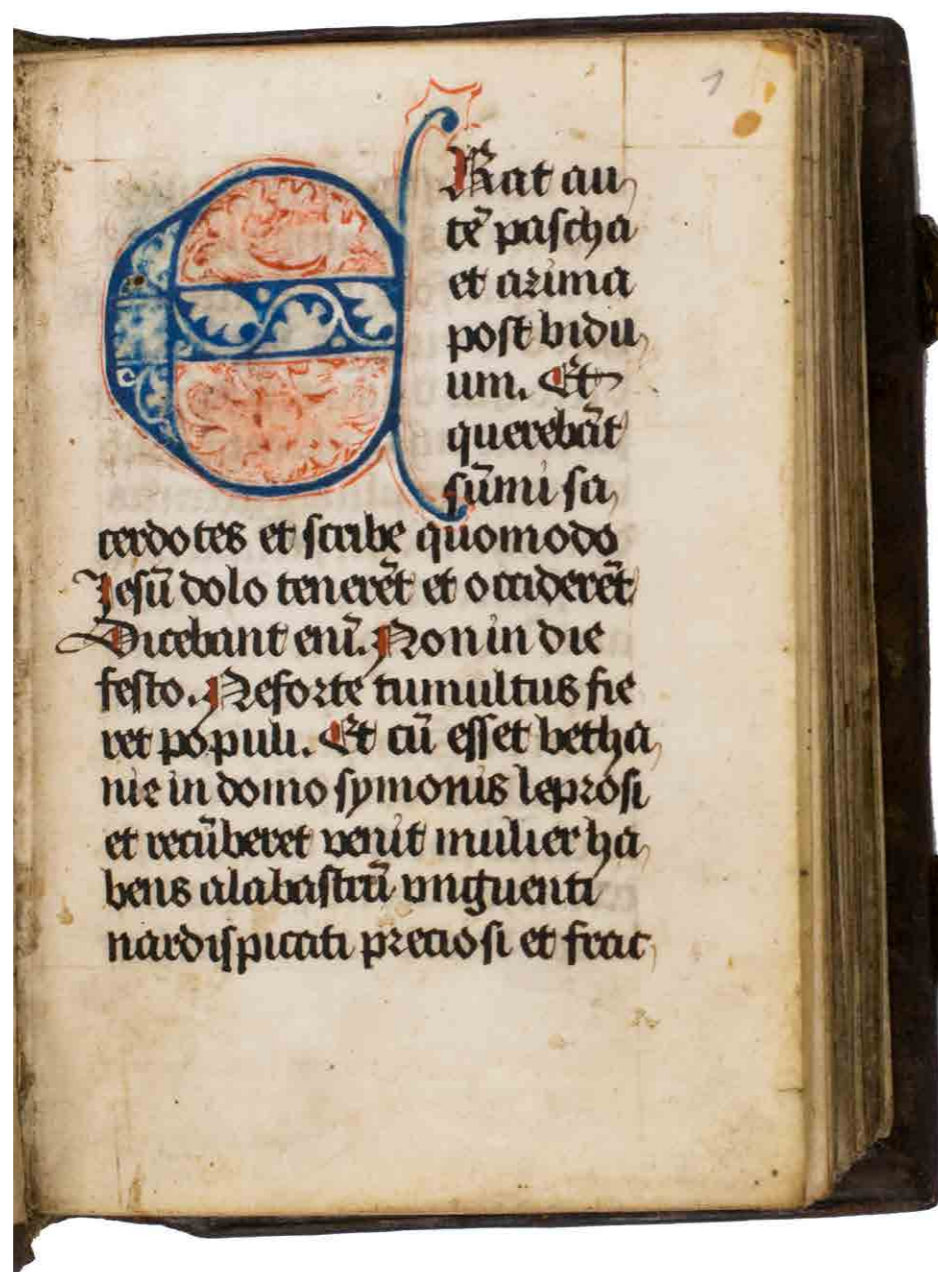 1
ERat au
tē pascha
et azima
post bidu
um. Et
querebāt
sūmi sa
cerdotes et scribe quomodo
Jesū dolo tenerēt et occiderēt
Dicebant enī. Non in die
festo. Neforte tumultus fie
ret populi. Et cū esset betha
nie in domo symonis leprosi
et recūberet venit mulier ha
bens alabastrū vnguenti
nardispicati preciosi et frac